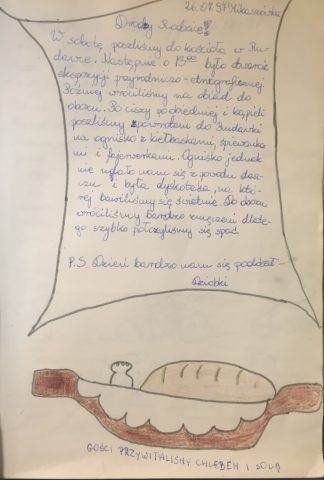 26.07.97 Mikaszówka
Drodzy Rodzice!
W sobotę poszliśmy do kościoła w Ru-
dawce. Następnie o 13⁰⁰ było otwarcie
ekspozycji przyrodniczo-etnograficznej
Później wróciliśmy na obiad do
obozu. Po ciszy poobiedniej i kąpieli
poszliśmy zpowrotem do Rudawki
na ognisko z kiełbaskami, śpiewanka
mi i fajerwerkami. Ognisko jednak
nie udało nam się z powodu desz-
czu i była dyskoteka, na któ-
rej bawiliśmy się świetnie. Do obozu
wróciliśmy bardzo zmęczeni dlate-
go szybko położyliśmy się spać.
P.S. Dzień bardzo nam się podobał -
Dziobki
GOŚCI PRZYWITALIŚMY CHLEBEM I SOLĄ